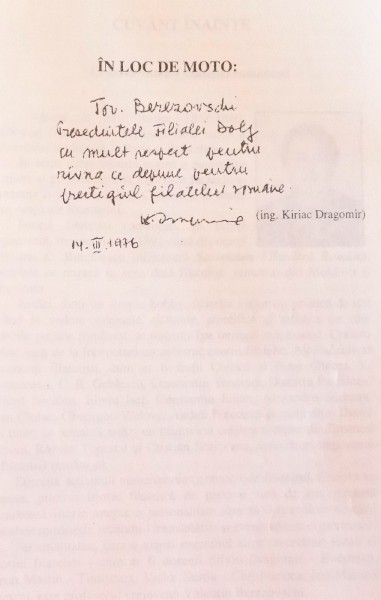 ÎN LOC DE MOTO:
Tov. Berezovschi
Președintele Filialei Dolj
cu mult respect pentru
rîvna ce depune pentru
prestigiul filateliei române.
K. Dragomir
(ing. Kiriac Dragomir)
14. III. 1976